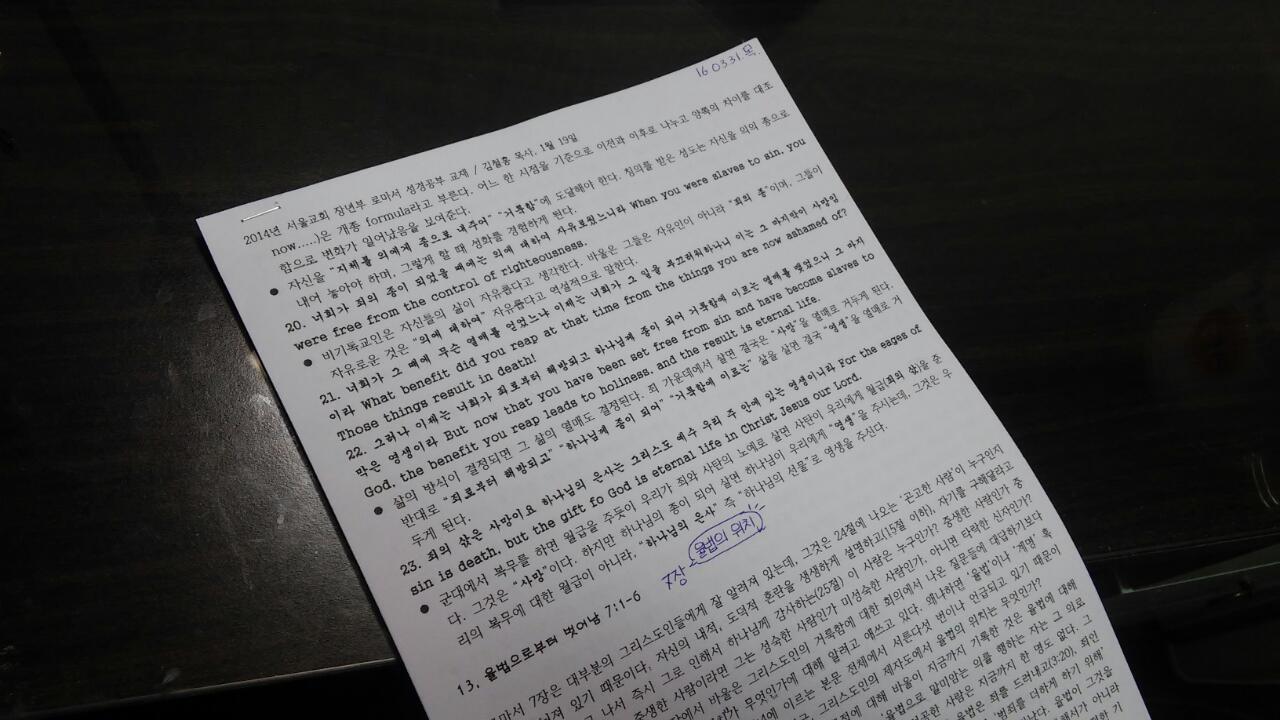 16.03.31.목.
2014년 서울교회 장년부 로마서 성경공부 교재 / 김철홍 목사, 1월 19일
now.....)은 개종 formula라고 부른다. 어느 한 시점을 기준으로 이전과 이후로 나누고 양쪽의 차이를 대조
함으로 변화가 일어났음을 보여준다.
● 자신을 "지체를 의에게 종으로 내주어" "거룩함"에 도달해야 한다. 칭의를 받은 성도는 자신을 의의 종으로
내어 놓아야 하며, 그렇게 할 때 성화를 경험하게 된다.
20. 너희가 죄의 종이 되었을 때에는 의에 대하여 자유로웠느니라 When you were slaves to sin, you
were free from the control of righteousness.
● 비기독교인은 자신들의 삶이 자유롭다고 생각한다. 바울은 그들은 자유인이 아니라 "죄의 종"이며, 그들이
자유로운 것은 "의에 대하여" 자유롭다고 역설적으로 말한다.
21. 너희가 그 때에 무슨 열매를 얻었느냐 이제는 너희가 그 일을 부끄러워하나니 이는 그 마지막이 사망임
이라 What benefit did you reap at that time from the things you are now ashamed of?
Those things result in death!
22. 그러나 이제는 너희가 죄로부터 해방되고 하나님께 종이 되어 거룩함에 이르는 열매를 맺었으니 그 마지
막은 영생이라 But now that you have been set free from sin and have become slaves to
God, the benefit you reap leads to holiness, and the result is eternal life.
● 삶의 방식이 결정되면 그 삶의 열매도 결정된다. 죄 가운데서 살면 결국은 "사망"을 열매로 거두게 된다.
반대로 "죄로부터 해방되고" "하나님께 종이 되어" "거룩함에 이르는" 삶을 살면 결국 "영생"을 열매로 거
두게 된다.
23. 죄의 삯은 사망이요 하나님의 은사는 그리스도 예수 우리 주 안에 있는 영생이니라 For the eages of
sin is death, but the gift fo God is eternal life in Christ Jesus our Lord.
● 군대에서 복무를 하면 월급을 주듯이 우리가 죄와 사탄의 노예로 살면 사탄이 우리에게 월급(죄의 삯)을 준
다. 그것은 "사망"이다. 하지만 하나님의 종이 되어 살면 하나님이 우리에게 "영생"을 주시는데, 그것은 우
리의 복무에 대한 월급이 아니라, "하나님의 은사" 즉 "하나님의 선물"로 영생을 주신다.
7장 - 율법의 위치
13. 율법으로부터 벗어남 7:1-6
마서 7장은 대부분의 그리스도인들에게 잘 알려져 있는데, 그것은 24절에 나오는 '곤고한 사람'이 누구인지
져 있기 때문이다. 자신의 내적, 도덕적 혼란을 생생하게 설명하고(15절 이하), 자기를 구해달라고
나서 즉시 그로 인해서 하나님께 감사하는(25절) 이 사람은 누구인가? 중생한 사람인가 중
중생한 사람이라면 그는 성숙한 사람인가 미성숙한 사람인가, 아니면 타락한 신자인가?
장에서 바울은 그리스도인의 거룩함에 대한 회의에서 나온 질문들에 대답하기보다
가 무엇인가에 대해 알려고 애쓰고 있다. 왜냐하면 '율법'이나 '계명' 혹
에 이르는 본문 전체에서 서른다섯 번이나 언급되고 있기 때문이
그리스도인의 제자도에서 율법의 위치는 무엇인가?
대해 바울이 지금까지 기록한 것은 율법에 대해
'율법으로 말미암는 의를 행하는 자는 그 의로
사람은 지금까지 한 명도 없다. 그
율법은 죄를 드러내고(3:20), 죄인
'범죄를 더하게 하기 위해'